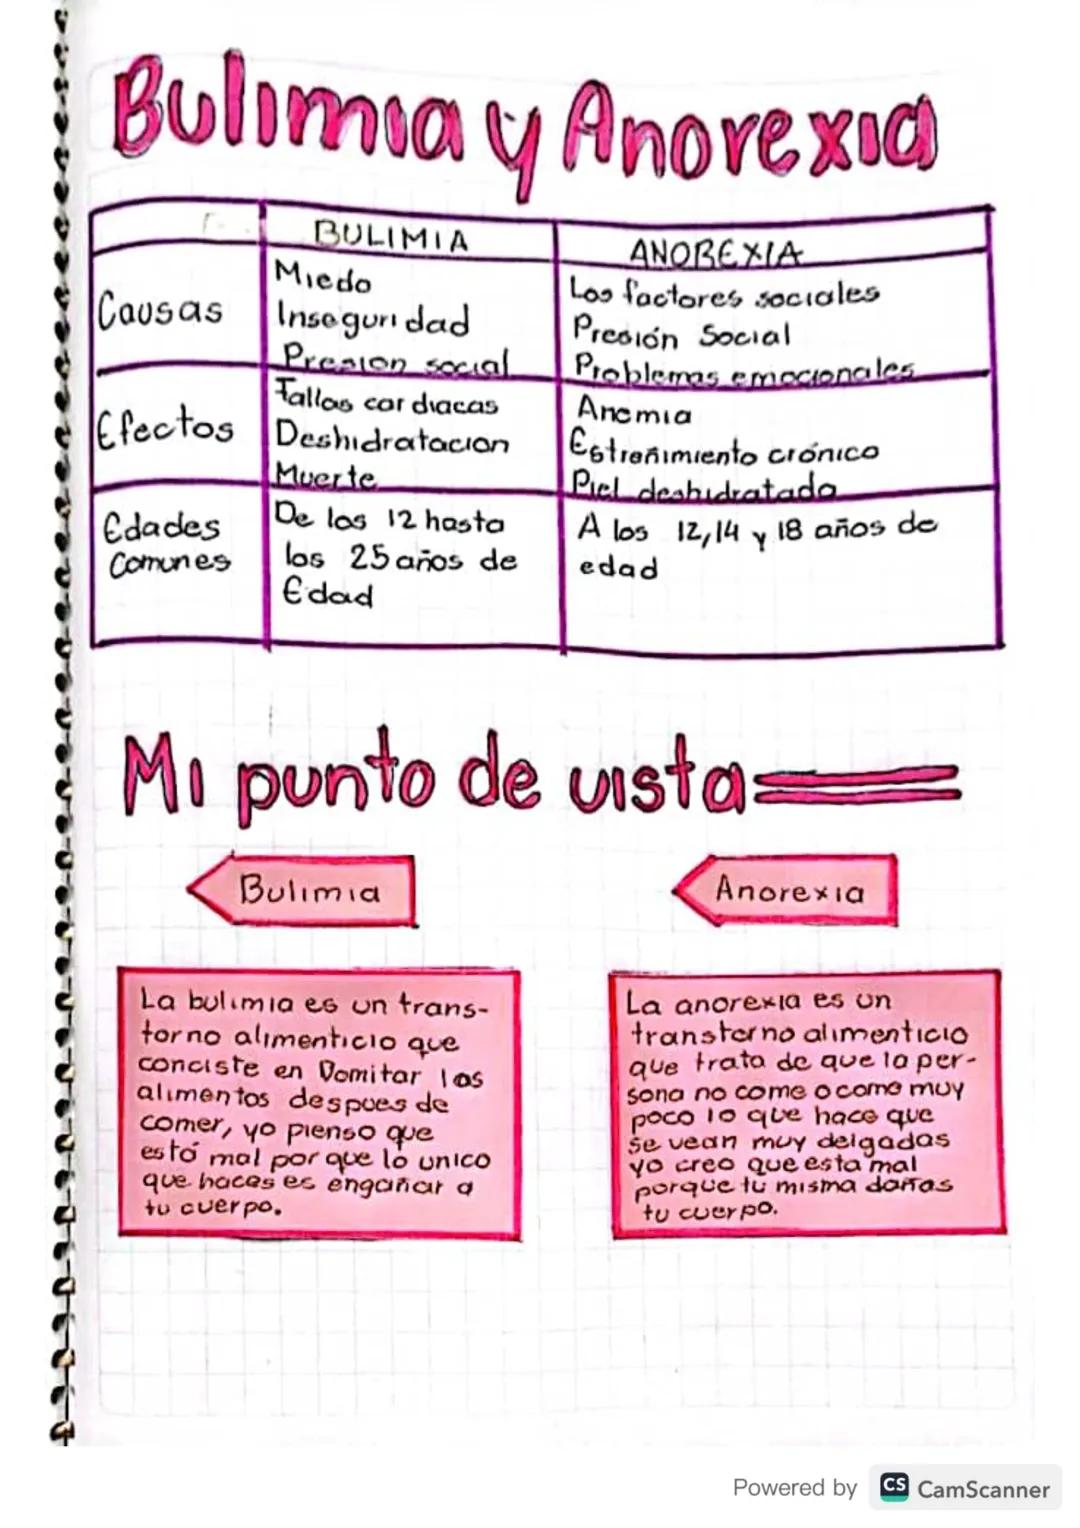 Bulimia y Anorexia
BULIMIA
ANOREXIA
Causas
Miedo
Inseguridad
Presion social
Los factores sociales
Presión Social
Problemas emocionales
Efectos
Fallas cardiacas
Deshidratacion
Muerte
Anemia
Estreñimiento crónico
Piel deshidratada
Edades
Comunes
De los 12 hasta
los 25 años de
Edad
A los 12,14 y 18 años de
edad
Mi punto de vista
Bulimia
La bulimia es un trans-
torno alimenticio que
conciste en Vomitar los
alimentos despues de
comer, yo pienso que
está mal por que lo unico
que haces es engañar a
tu cuerpo.
Anorexia
La anorexia es un
transtorno alimenticio
que trata de que la per-
sona no come o come muy
poco lo que hace que
se vean muy delgadas
yo creo que esta mal
porque tu misma dañas
tu cuerpo.
Powered by CS CamScanner